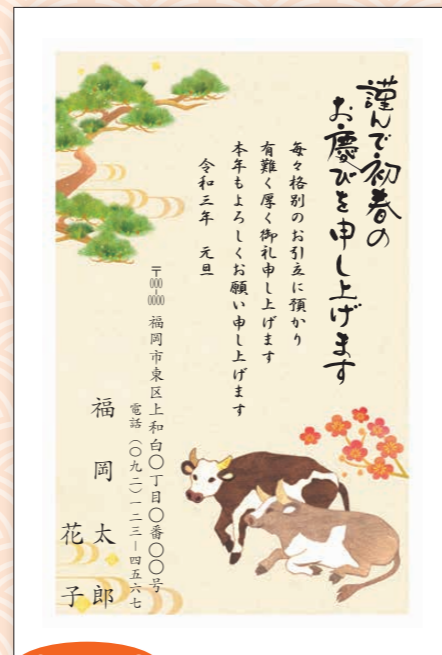 謹んで初春の
お慶びを申し上げます
毎々格別のお引立に預かり
有難く厚く御礼申し上げます
本年もよろしくお願い申し上げます
令和三年　元旦
〒000-0000　福岡市東区上和白〇丁目〇番〇〇号
電話（〇九二）一二三－四五六七
福岡　太郎
花子